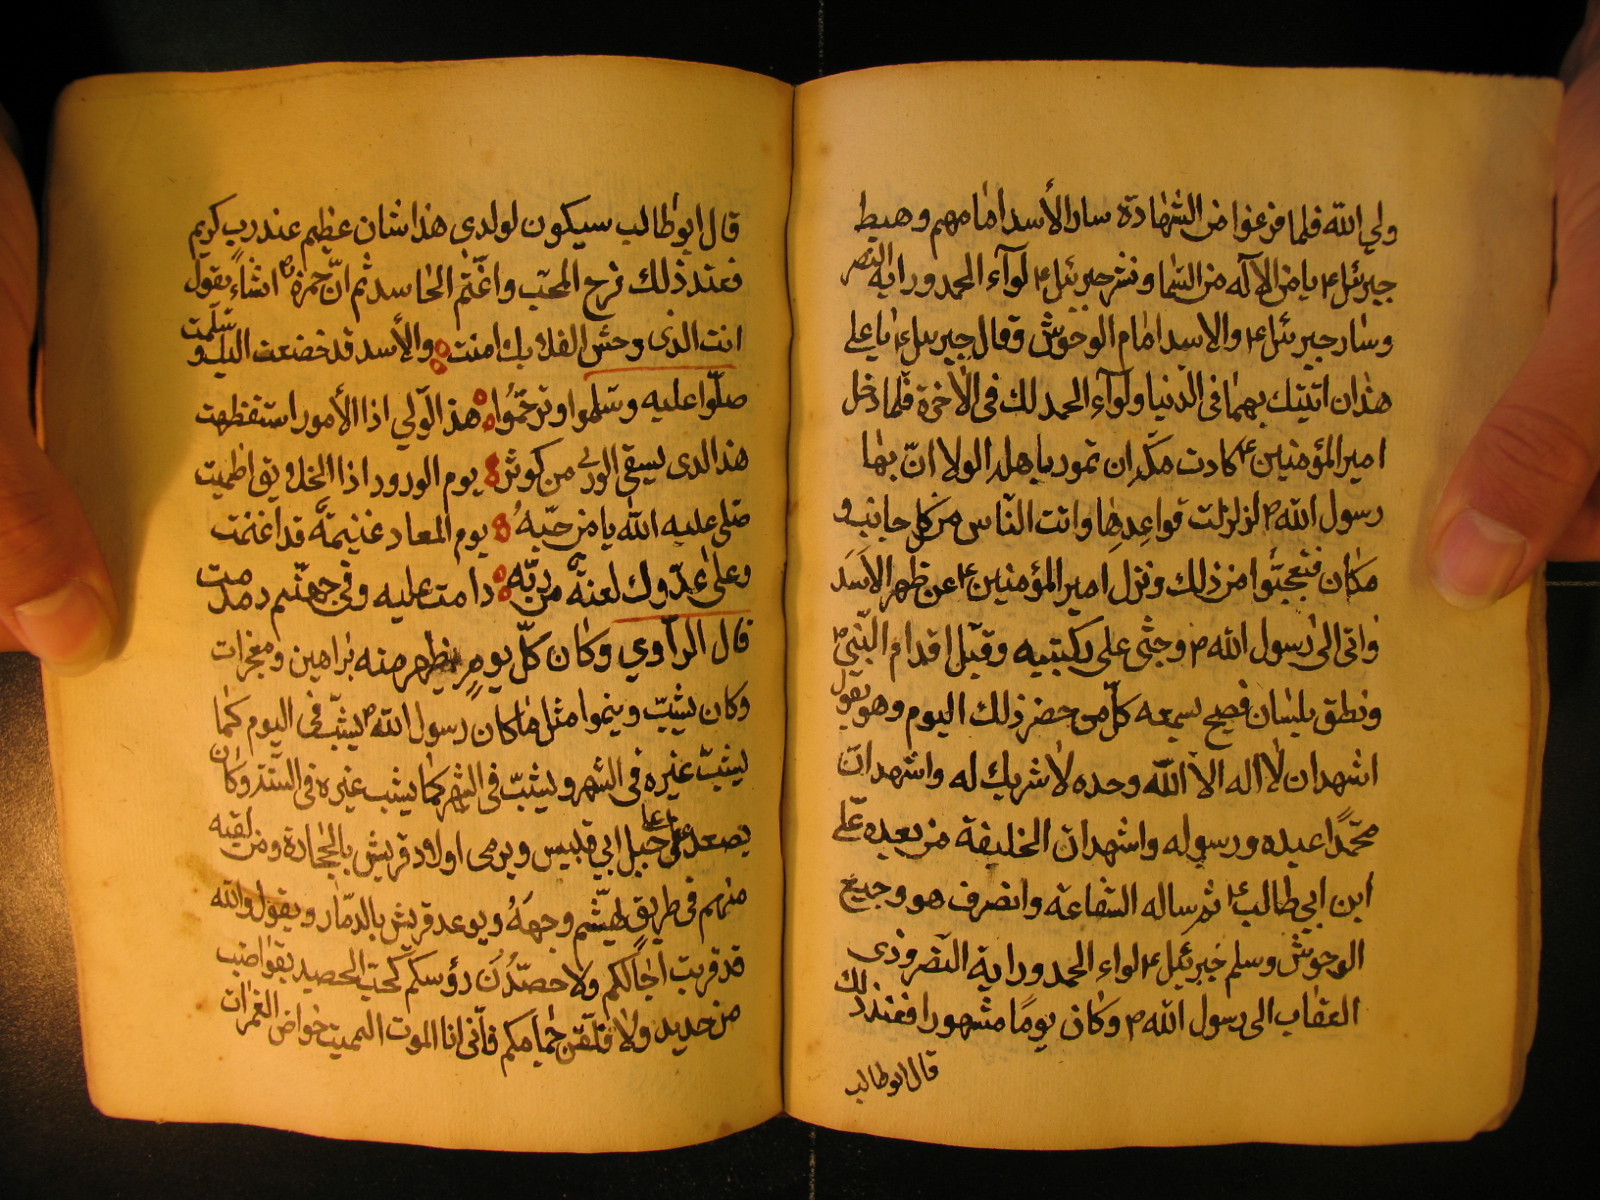 ولي الله فلما فرغوا من الشهادة سار الأسد امامهم وهبط
جبرئيل ء يا من الا له من السما ونشر جبرئيل ء لوآء الحمد وراية النصر
وسار جبرئيل ء والاسد امام الوحوش وقال جبرئيل ء يا علي
هذان اتيتك بهما في الدنيا ولوآء الحمد لك في الآخرة فلما دخل
امير المؤمنين ء كادت مكة ان تمور باهلها لولا ان بها
رسول الله ص لزلزلت قواعدها واتت الناس من كل جانب و
مكان فتعجبوا من ذلك ونزل امير المؤمنين ء عن ظهر الاسد
واتى الى رسول الله ص وجثى على ركبتيه وقبل اقدام النبي ص
ونطق بلسان فصيح يسمعه كل من حضر ذلك اليوم وهو يقول
اشهد ان لا اله الا الله وحده لا شريك له واشهد ان
محمدًا عبده ورسوله واشهد ان الخليفة من بعده علي
ابن ابي طالب ء ثم ساله الشفاعة وانصرف هو وجميع
الوحوش وسلم جبرئيل ء لواء الحمد وراية النصر وذى
العقاب الى رسول الله ص وكان يومًا مشهورا فعند ذلك
قال ابو طالب
قال ابو طالب سيكون لولدى هذا شان عظيم عند رب كريم
فعند ذلك فرح المحب واغتم الحاسد ثم ان حمزة رض انشاء يقول
انت الذى وحش الفلا بك امنت والأسد قد خضعت اليك و سلمت
صلوا عليه وسلموا وترحموا هذا الولي اذا الأمور استفظهت
هذا الذى يسقى الورى من كوثر يوم الورود اذا الخلايق اظميت
صلى عليه الله يا من حبه يوم المعاد غنيمة قد اغنمت
وعلى عدوك لعنة من ربه دامت عليه وفي جهنم دمدمت
قال الراوي وكان كل يوم يظهر منه براهين ومعجزات
وكان يشب وينموا مثل ما كان رسول الله ص يشب في اليوم كما
يشب غيره في الشهر ويشب في الشهر كما يشب غيره في السنة وكان
يصعد على جبل ابي قبيس ويرمى اولاد قريش بالحجارة ومن لقيه
منهم في طريق هشم وجهه ويوعد قريش بالدمار ويقول والله
قد قربت اجالكم ولا حصدن رؤسكم كحب الحصيد بقواضب
من حديد ولافلقن هامكم فانى انا الموت المميت خواض الغمرات